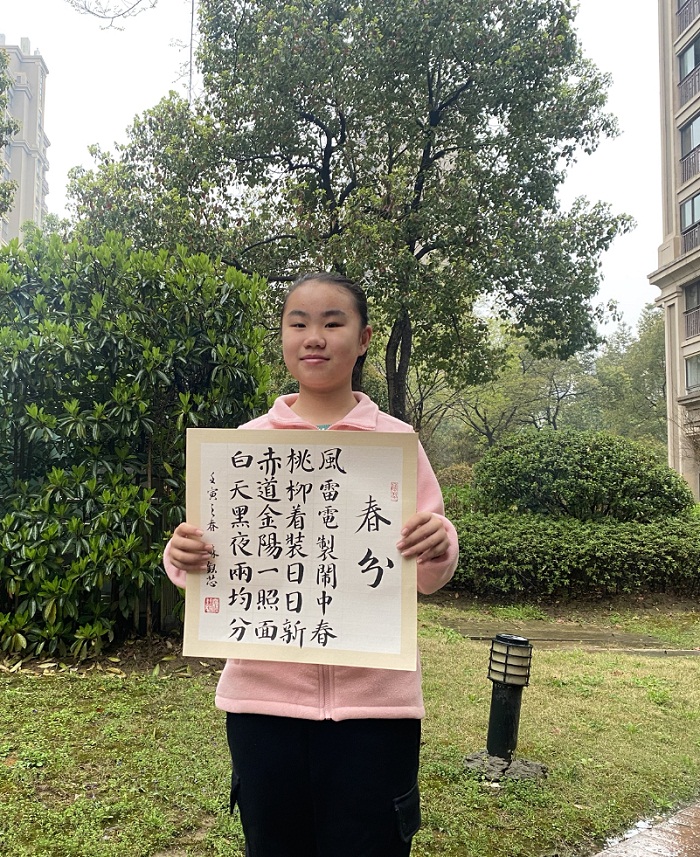 春分
風雷電製鬧中春
桃柳着裝日日新
赤道金陽一照面
白天黑夜兩均分
壬寅之春